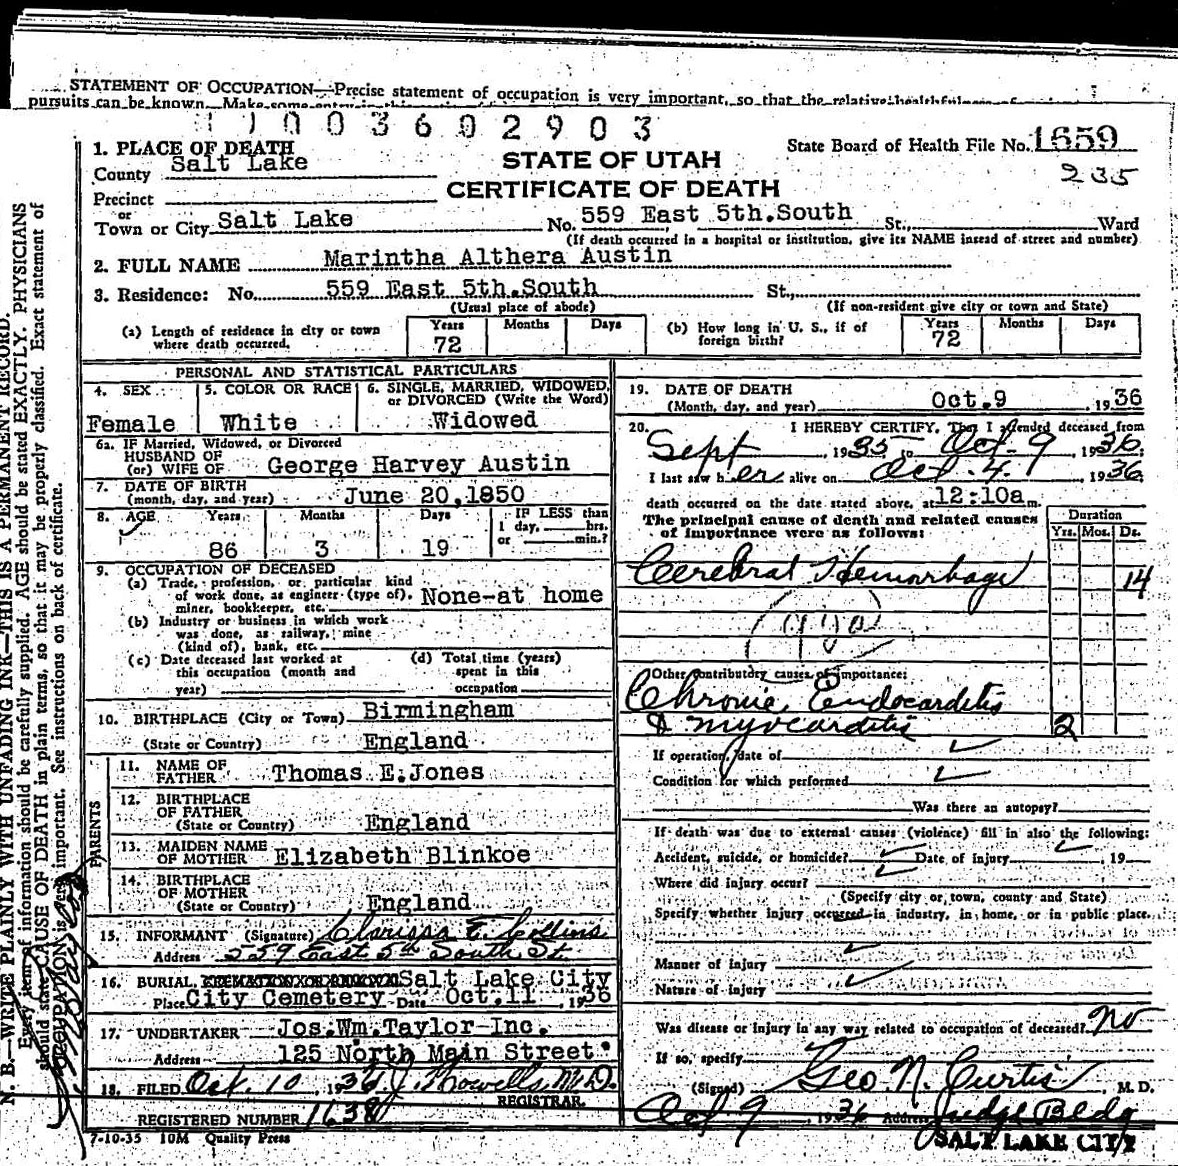 STATEMENT OF OCCUPATION—Precise statement of occupation is very important, so that the relative healthfulness of
pursuits can be known. Make some entry in this
1003602903
State Board of Health File No. 1659
235
STATE OF UTAH
CERTIFICATE OF DEATH
1. PLACE OF DEATH
County Salt Lake
Precinct
or
Town or City Salt Lake No. 559 East 5th.South St., Ward
(If death occurred in a hospital or institution, give its NAME insead of street and number)
2. FULL NAME Marintha Althera Austin
3. Residence: No. 559 East 5th.South St.,
(Usual place of abode) (If non-resident give city or town and State)
(a) Length of residence in city or town where death occurred. Years 72 Months Days
(b) How long in U. S., if of foreign birth? Years 72 Months Days
PERSONAL AND STATISTICAL PARTICULARS
4. SEX Female
5. COLOR OR RACE White
6. SINGLE, MARRIED, WIDOWED, or DIVORCED (Write the Word) Widowed
6a. IF Married, Widowed, or Divorced
HUSBAND OF
(or) WIFE OF George Harvey Austin
7. DATE OF BIRTH
(month, day, and year) June 20,1850
8. AGE Years 86 Months 3 Days 19 IF LESS than 1 day, hrs. or min.?
9. OCCUPATION OF DECEASED
(a) Trade, profession, or particular kind
of work done, as engineer (type of),
miner, bookkeeper, etc. None-at home
(b) Industry or business in which work
was done, as railway, mine
(kind of), bank, etc.
(c) Date deceased last worked at
this occupation (month and
year)
(d) Total time (years)
spent in this
occupation
10. BIRTHPLACE (City or Town) Birmingham
(State or Country) England
PARENTS
11. NAME OF FATHER Thomas E.Jones
12. BIRTHPLACE OF FATHER
(State or Country) England
13. MAIDEN NAME OF MOTHER Elizabeth Blinkoe
14. BIRTHPLACE OF MOTHER
(State or Country) England
15. INFORMANT (Signature) Clarissa E. Collins
Address 559 East 5th South St.
16. BURIAL, Salt Lake City
Place City Cemetery Date Oct.11, 1936
17. UNDERTAKER Jos.Wm.Taylor Inc.
Address 125 North Main Street
18. FILED Oct. 10 1936 J. Howells M.D.
REGISTRAR.
REGISTERED NUMBER 1638
7-10-35 10M Quality Press
19. DATE OF DEATH
(Month, day, and year) Oct.9, 1936
20. I HEREBY CERTIFY, That I attended deceased from
Sept, 1935 to Oct. 9, 1936.
I last saw her alive on Oct. 4, 1936,
death occurred on the date stated above, at 12:10a m.
The principal cause of death and related causes
of importance were as follows:
Duration
Yrs. Mos. Ds.
Cerebral Hemorhage 14
Other contributory causes of importance:
Chronic Endocarditis
& myocarditis 2
If operation, date of
Condition for which performed
Was there an autopsy?
If death was due to external causes (violence) fill in also the following:
Accident, suicide, or homicide? Date of injury 19
Where did injury occur?
(Specify city or town, county and State)
Specify whether injury occurred in industry, in home, or in public place.
Manner of injury
Nature of injury
Was disease or injury in any way related to occupation of deceased? No
If so, specify
(Signed) Geo. N. Curtis, M. D.
Oct 9 1936 Address Judge Bldg
SALT LAKE CITY
N. B.—WRITE PLAINLY WITH UNFADING INK—THIS IS A PERMANENT RECORD.
Every item of information should be carefully supplied. AGE should be stated EXACTLY. PHYSICIANS
should state CAUSE OF DEATH in plain terms, so that it may be properly classified. Exact statement of
OCCUPATION is very important. See instructions on back of certificate.